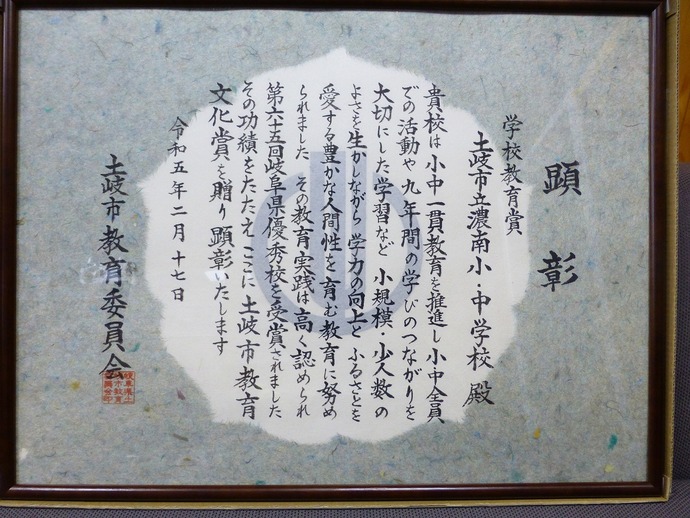 顕彰
学校教育賞
土岐市立濃南小・中学校 殿
貴校は小中一貫教育を推進し小中全員
での活動や九年間の学びのつながりを
大切にした学習など 小規模・少人数の
よさを生かしながら 学力の向上と ふるさとを
愛する豊かな人間性を育む教育に努め
られました その教育実践は高く認められ
第六十五回岐阜県優秀校を受賞されました
その功績をたたえ ここに 土岐市教育
文化賞を贈り 顕彰いたします
令和五年二月十七日
土岐市教育委員会